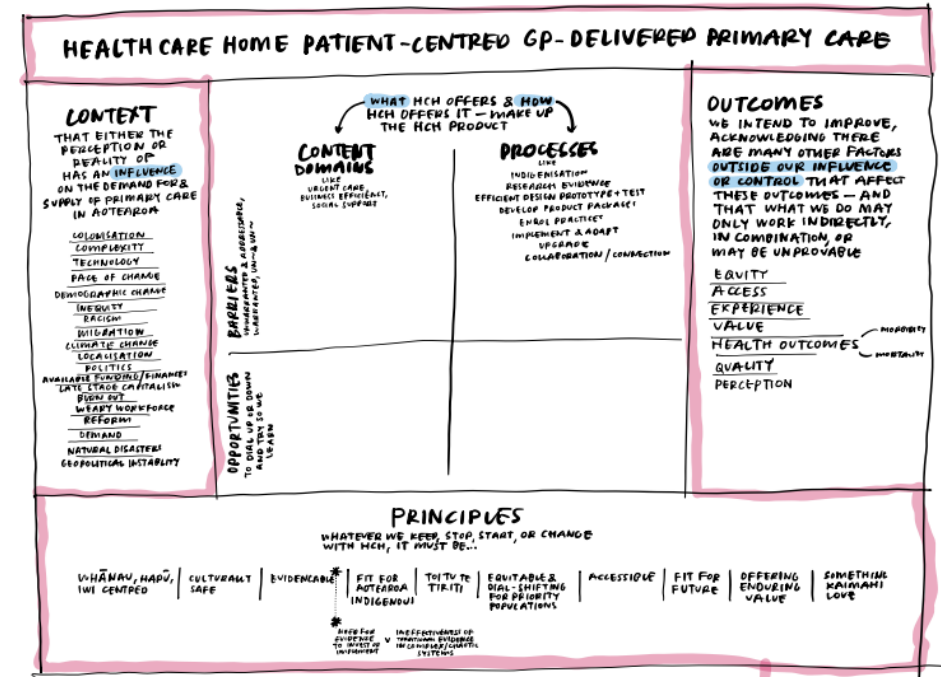 HEALTH CARE HOME PATIENT-CENTRED GP-DELIVERED PRIMARY CARE
CONTEXT
THAT EITHER THE
PERCEPTION OR
REALITY OF
HAS AN INFLUENCE
ON THE DEMAND FOR &
SUPPLY OF PRIMARY CARE
IN AOTEAROA
COLONISATION
COMPLEXITY
TECHNOLOGY
PACE OF CHANGE
DEMOGRAPHIC CHANGE
INEQUITY
RACISM
MIGRATION
CLIMATE CHANGE
LOCALISATION
POLITICS
AVAILABLE FUNDING/FINANCES
LATE STAGE CAPITALISM
BURN OUT
WEARY WORKFORCE
REFORM
DEMAND
NATURAL DISASTERS
GEOPOLITICAL INSTABLITY
WHAT HCH OFFERS & HOW
HCH OFFERS IT — MAKE UP
THE HCH PRODUCT
CONTENT
DOMAINS
LIKE
URGENT CARE,
BUSINESS EFFICIENCY,
SOCIAL SUPPORT
PROCESSES
LIKE
INDIGENISATION
RESEARCH EVIDENCE
EFFICIENT DESIGN PROTOTYPE + TEST
DEVELOP PRODUCT PACKAGES
ENROL PRACTICES
IMPLEMENT & ADAPT
UPGRADE
COLLABORATION / CONNECTION
BARRIERS
UNWARRANTED & ADDRESSABLE,
WARRANTED, UN~&UN~
OPPORTUNITIES
TO DIAL UP OR DOWN
AND TRY SO WE
LEARN
OUTCOMES
WE INTEND TO IMPROVE,
ACKNOWLEDGING THERE
ARE MANY OTHER FACTORS
OUTSIDE OUR INFLUENCE
OR CONTROL THAT AFFECT
THESE OUTCOMES — AND
THAT WHAT WE DO MAY
ONLY WORK INDIRECTLY,
IN COMBINATION, OR
MAY BE UNPROVABLE
EQUITY
ACCESS
EXPERIENCE
VALUE
HEALTH OUTCOMES
MORBIDITY
MORTALITY
QUALITY
PERCEPTION
PRINCIPLES
WHATEVER WE KEEP, STOP, START, OR CHANGE
WITH HCH, IT MUST BE...
WHĀNAU, HAPŪ,
IWI CENTRED
CULTURALLY
SAFE
EVIDENCABLE*
FIT FOR
AOTEAROA
INDIGENOUS
TOITU TE
TIRITI
EQUITABLE &
DIAL-SHIFTING
FOR PRIORITY
POPULATIONS
ACCESSIBLE
FIT FOR
FUTURE
OFFERING
ENDURING
VALUE
SOMETHING
KAIMAHI
LOVE
*
NEED FOR
EVIDENCE
TO INVEST OR
IMPLEMENT
V
INEFFECTIVENESS OF
EVIDENCE
IN COMPLEX/CHAOTIC
SYSTEMS